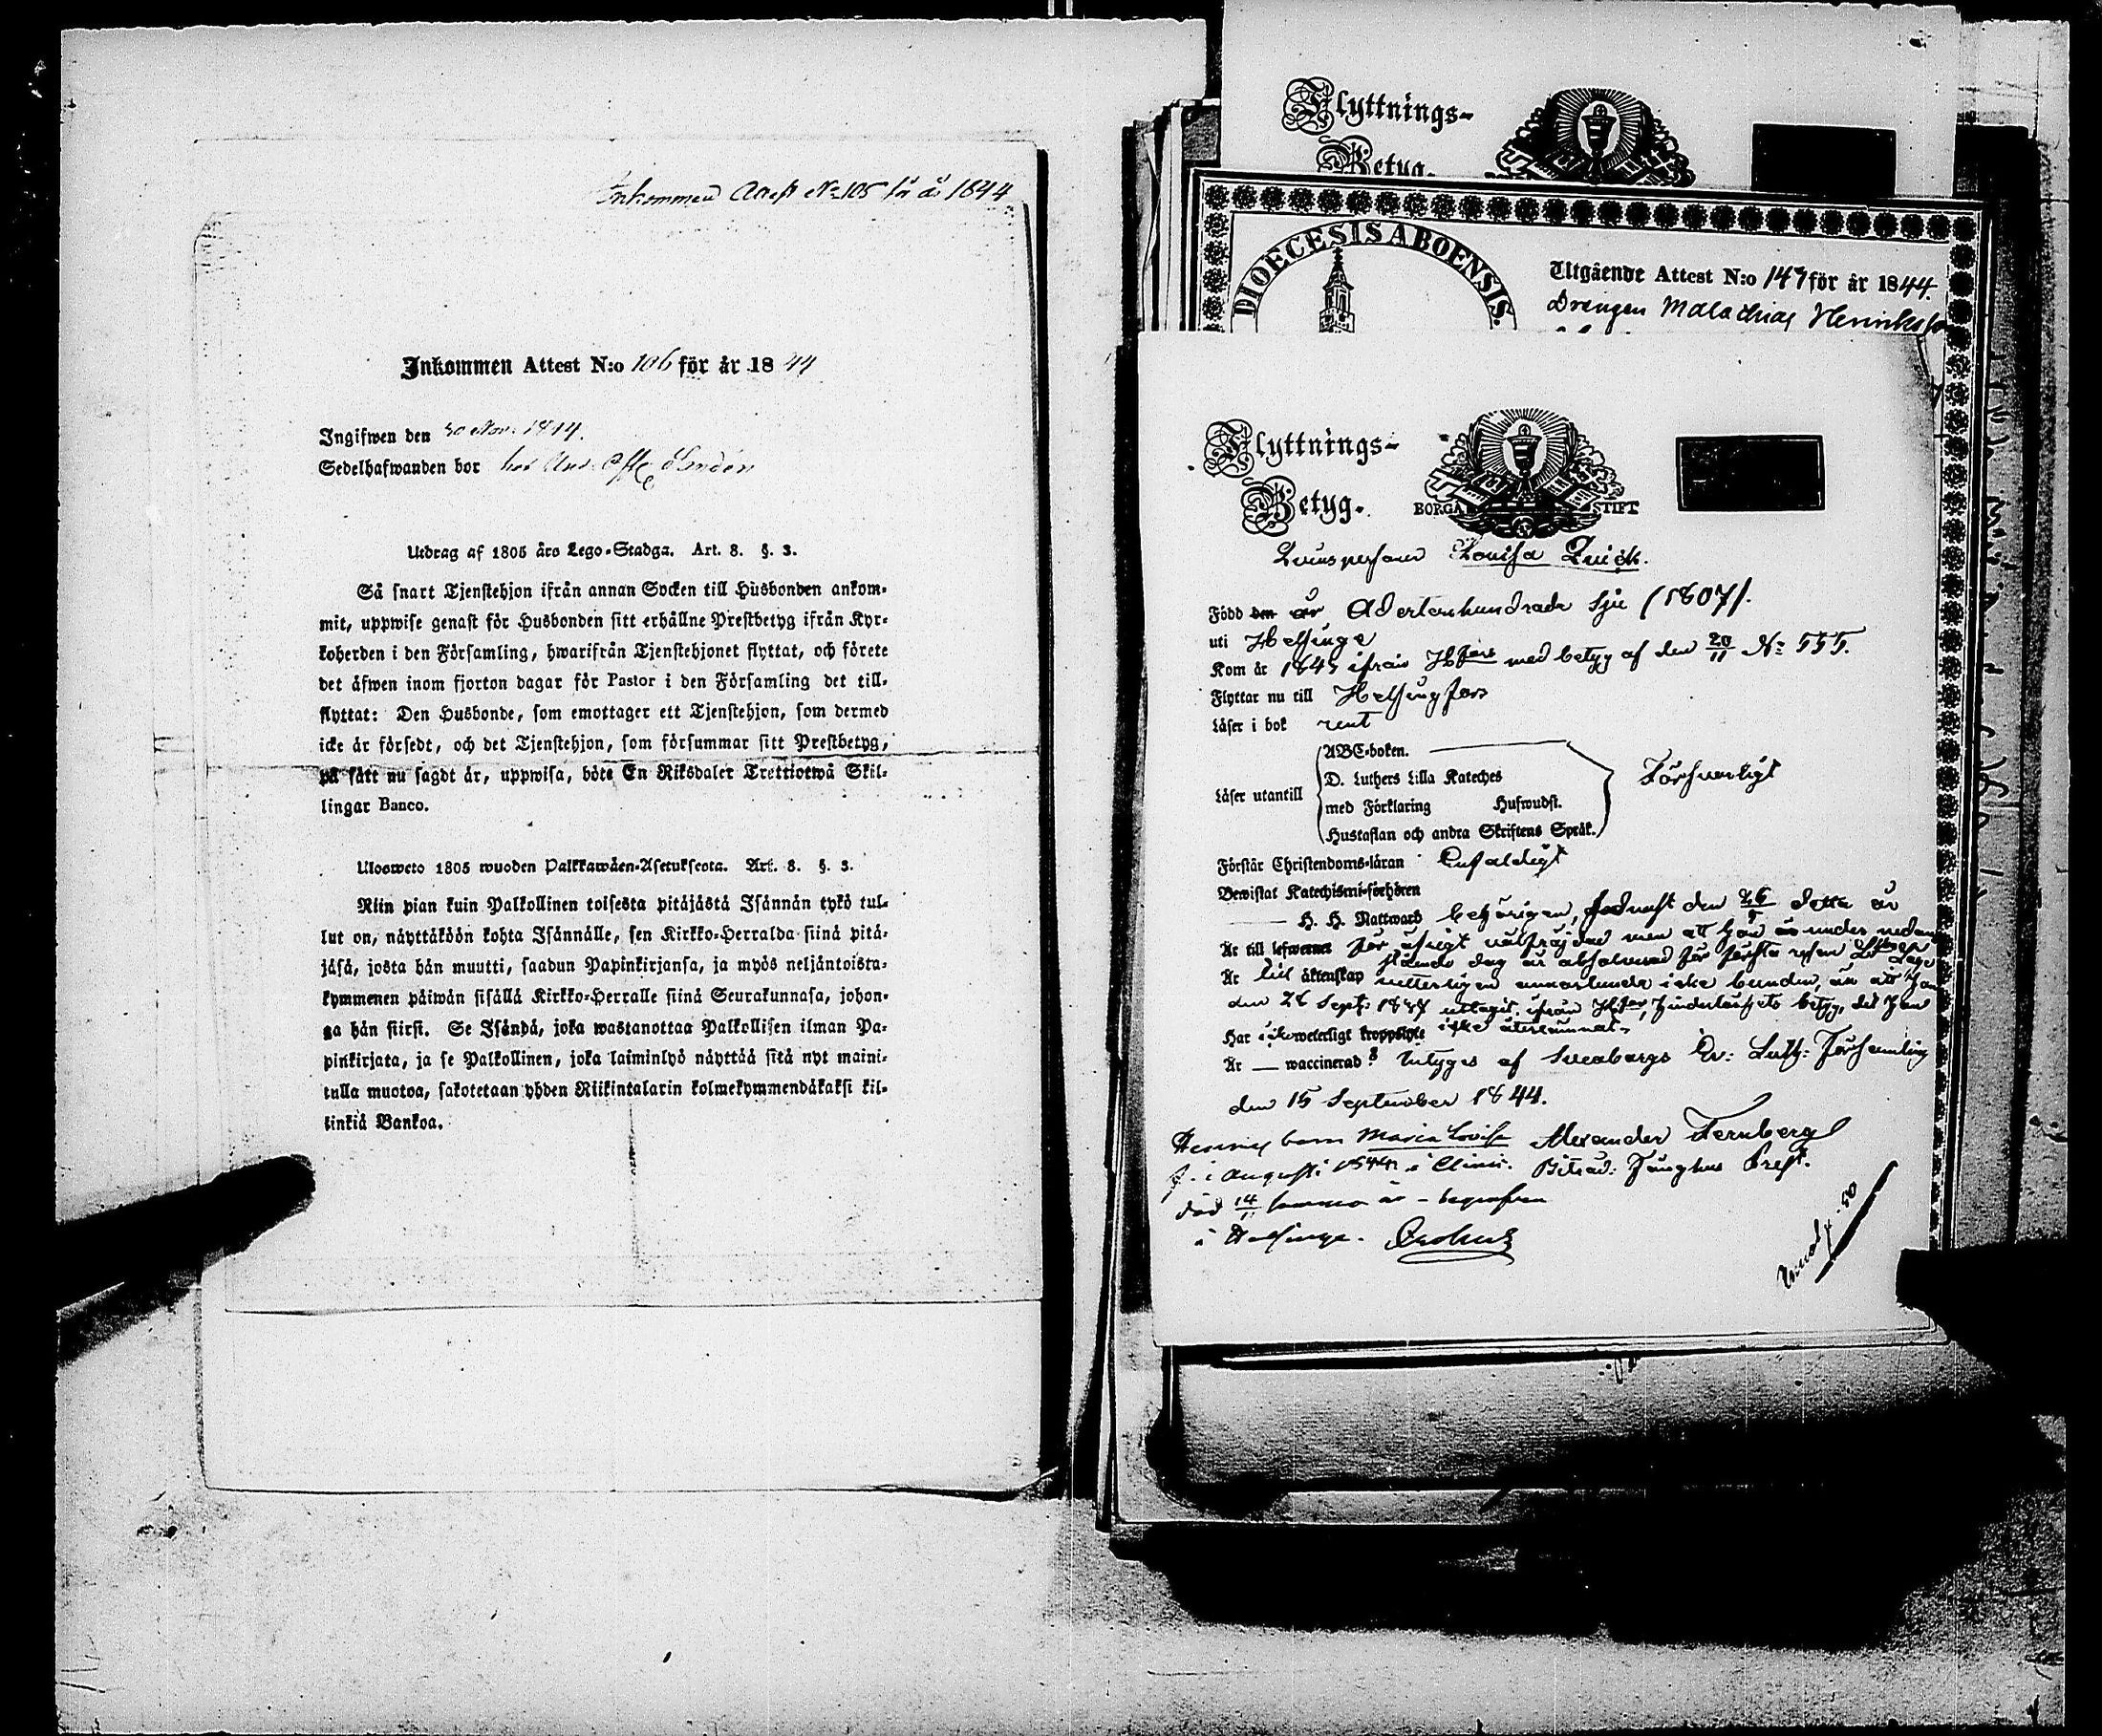 Inkommen Attest No 105 för år 1844
Inkommen Attest N:o 106 för år 1844
Ingifwen den 30 Nov. 1844.
Sedelhafwanden bor hos And.
Utdrag af 1805 års Lego-Stadga. Art. 8. §. 3.
Så snart Tjenstehjon ifrån annan Socken till Husbonden ankom-
mit, uppwise genast för Husbonden sitt erhållne Prestbetyg ifrån Kyr-
koherden i den Församling, hwarifrån Tjenstehjonet flyttat, och förete
det äfwen inom fjorton dagar för Pastor i den Församling det till-
flyttat: Den Husbonde, som emottager ett Tjenstehjon, som dermed
icke är försedt, och det Tjenstehjon, som försummar sitt Prestbetyg,
på sätt nu sagdt är, uppwisa, böte En Riksdaler Trettiotwå Skil-
lingar Banco.
Ulosweto 1805 wuoden Palkkawäen-Asetuksesta. Art. 8. §. 3.
Niin pian kuin Palkollinen toisesta pitäjästä Isännän tykö tul-
lut on, näyttäköön kohta Isännälle, sen Kirkko-Herralda siinä pitä-
jäsä, josta hän muutti, saadun Papinkirjansa, ja myös neljäntoista-
kymmenen päiwän sisällä Kirkko-Herralle siinä Seurakunnasa, johon-
ga hän siirsi. Se Isändä, joka wastanottaa Palkollisen ilman Pa-
pinkirjata, ja se Palkollinen, joka laiminlyö näyttää sitä nyt maini-
tulla muotoa, sakotetaan yhden Riikintalarin kolmekymmendäkaksi kil-
linkiä Bankoa.
Flyttnings-
Betyg.
DIOECESIS ABOENSIS.
Utgående Attest N:o 147 för år 1844.
Drengen Malachias Henriksson
Flyttnings-
Betyg.
BORGÅ STIFT
Qvinspersonen Lovisa Quick.
Född den år Adertonhundrade sju (1807).
uti Helsinge
Kom år 1843 ifrån Hfors med betyg af den 20/11 No 555.
Flyttar nu till Helsingfors
Läser i bok rent
Läser utantill
ABC-boken.
D. Luthers Lilla Kateches
med Förklaring Hufwudst.
Hustaflan och andra Skriftens Språk.
Försvarligt
Förstår Christendoms-läran Enfaldigt
Bewistat Katechismi-förhören
H. H. Nattward behörigen, sednast den 26/5 detta år
Är till lefwernet för öfrigt välfräjdad men att hon är under nedan
Är till äktenskap
den 28 Sept. 1837 uttagit ifrån Hfors hinderlöshets betyg, det hon
Har icke weterligt kroppslyte icke återlämnat.
Är — waccinerad? Intygas af Sveaborgs Ev: Luth: Församling
den 15 September 1844.
Hennes barn Maria Lovisa Alexander Fernberg
f. i Augusti 1844 i Clinic. Biträd: Tjenstgör. Prest.
död 14/11 samma år - begrafven
i Helsinge.